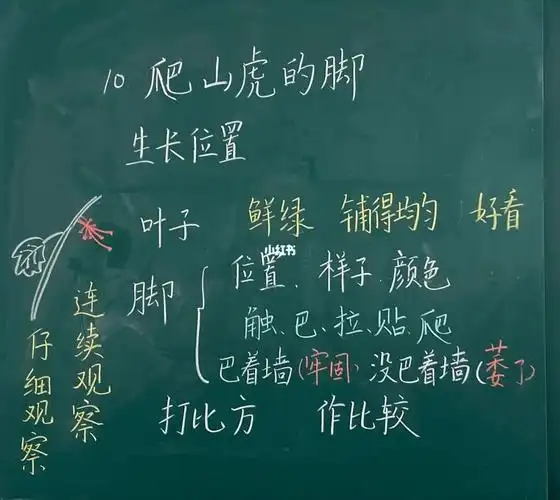 10 爬山虎的脚
生长位置
叶子 鲜绿 铺得均匀 好看
小红书
脚 位置、样子、颜色
触、巴、拉、贴、爬
巴着墙(牢固) 没巴着墙(萎了)
打比方 作比较
连续观察
仔细观察